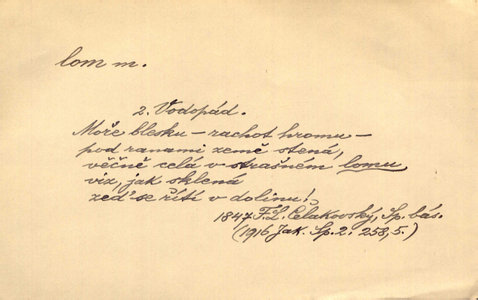 lom m.
2. Vodopád.
Moře blesku – rachot hromu –
pod ranami země stená,
věčně celá v strašném lomu
viz, jak sklená
zeď se řítí v dolinu!
1847 F. L. Čelakovský, Sp. bás.
(1916 Jak. Sp. 2. 258, 5.)